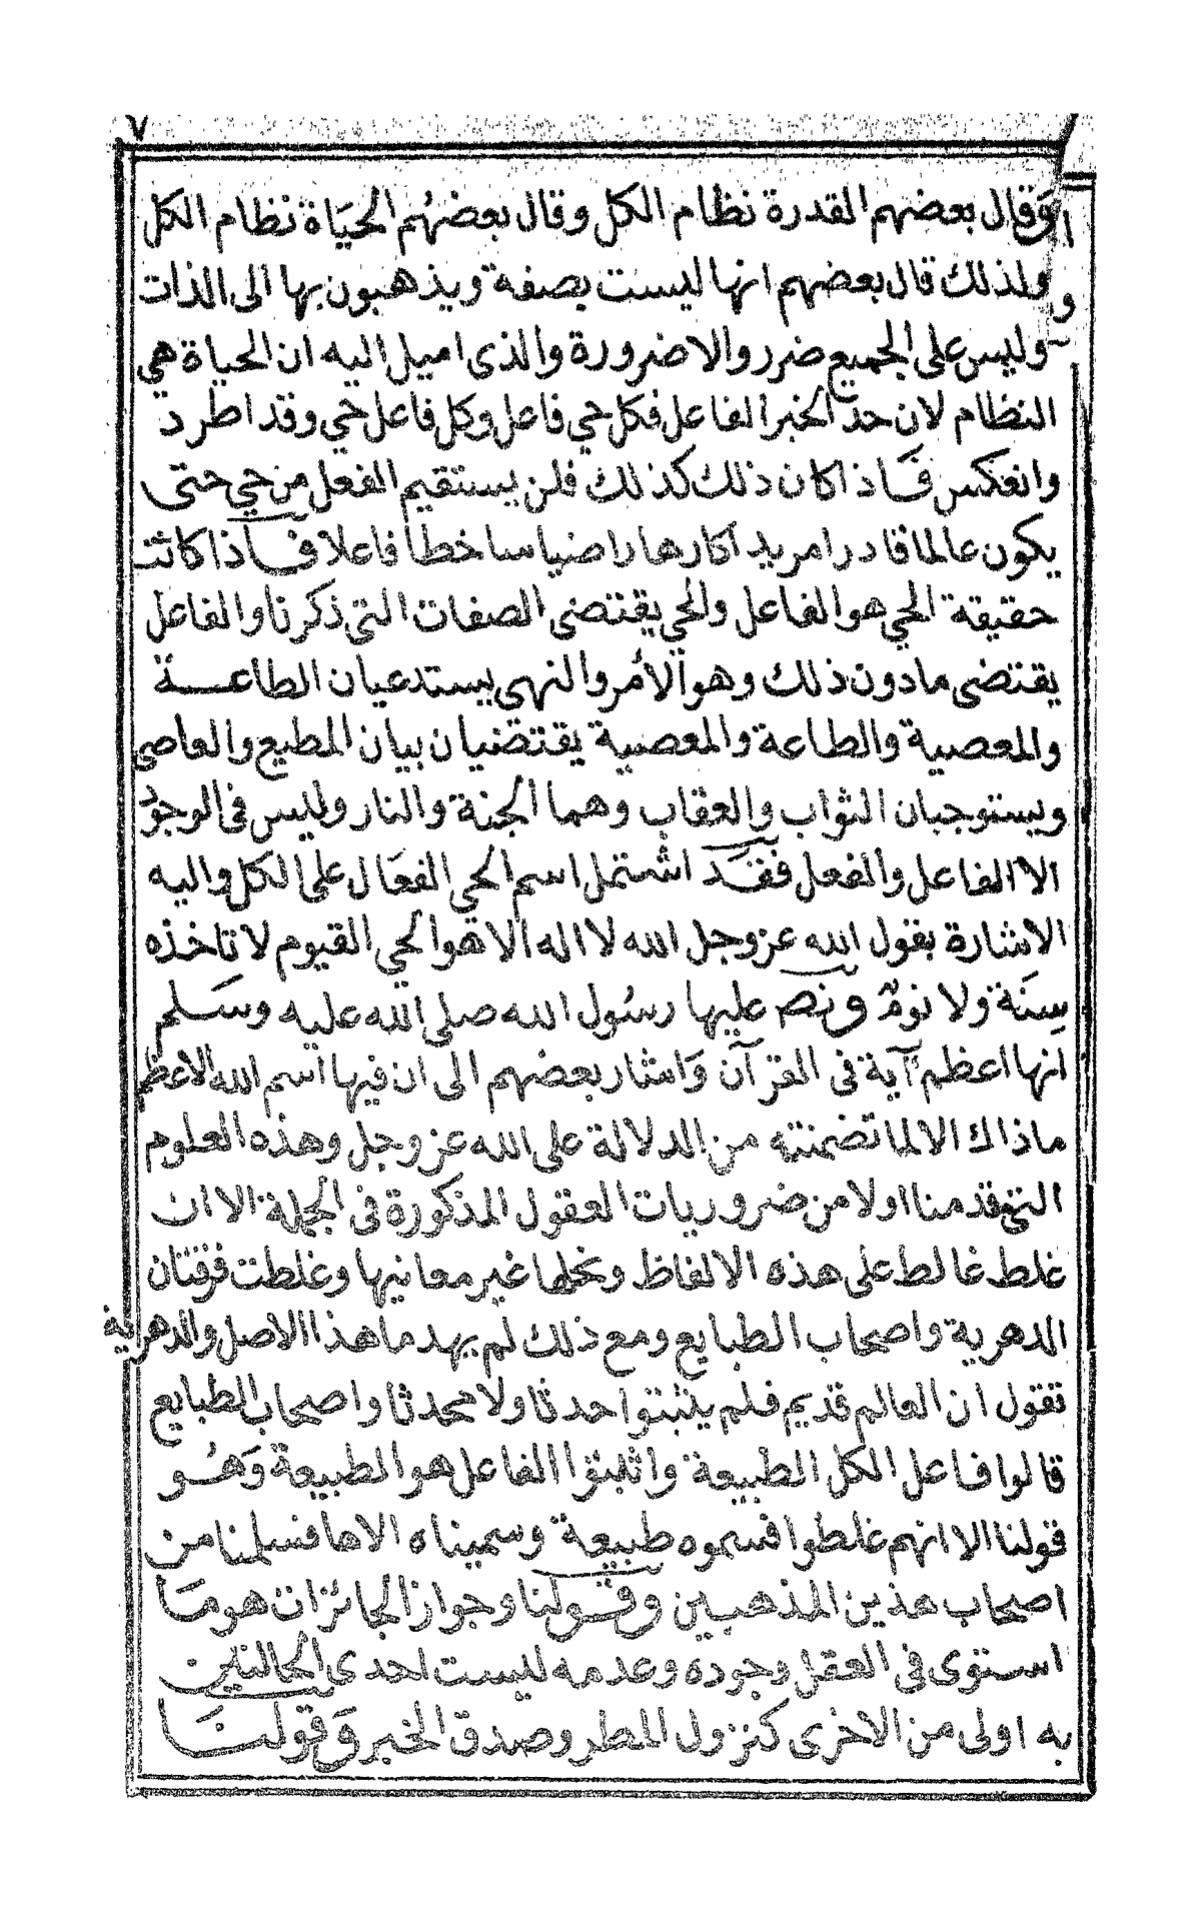 ٧
وقال بعضهم القدرة نظام الكل وقال بعضهُم الحيَاة نظام الكل
ولذلك قال بعضهم انها ليست بصفة ويذهبون بها الى الذات
وليس على الجميع ضرر والاضرورة والذى اميل اليه ان الحياة هي
النظام لان حد الخبر الفاعل فكل حي فاعل وكل فاعل حي وقد اطرد
وانعكس فَاذا كان ذلك كذلك فلن يستقيم الفعل من حي حتى
يكون عالما قادرا مريدا كارها راضيا ساخطا فاعلا فاذا كانت
حقيقة الحي هو الفاعل والحي يقتضى الصفات التى ذكرنا والفاعل
يقتضى ما دون ذلك وهو الامر والنهى يستدعيان الطاعة
والمعصية والطاعة والمعصية يقتضيان بيان المطيع والعاصى
ويستوجبان الثواب والعقاب وهما الجنة والنار وليس فى الوجود
الا الفاعل والفعل فقَد اشتمل اسم الحي الفعَال على الكل واليه
الاشارة بقول الله عز وجل الله لا اله الا هو الحي القيوم لا تاخذه
سِنَة ولا نومٌ ونص عليها رسُول الله صلى الله عليه وسَلم
انها اعظم آية فى القرآن وَاشار بعضهم الى ان فيها اسم الله الاعظم
ماذاك الا لما تضمنته من الدلالة على الله عز وجل وهذه العلوم
التى قدمنا اولا من ضروريات العقول المذكورة فى الجملة الا ان
غلط غالط على هذه الالفاظ ونحلها غير معانيها وغلطت فرقتان
الدهرية واصحاب الطبايع ومع ذلك لم يهدما هذا الاصل والدهرية
تقول ان العالم قديم فلم يثبتوا حدثا ولا محدثا واصحاب الطبايع
قالوا فاعل الكل الطبيعة واثبتوا الفاعل هو الطبيعة وَهُو
قولنا الا انهم غلطوا فسموه طبيعة وسميناه الاها فسلمنا من
اصحاب هذين المذهبين وقولنا وجواز الجائزات هو مَا
استوى فى العقل وجوده وعدمه ليست احدى الحالتين
به اولى من الاخرى كنزول المطر وصدق الخبر وَقولنَا